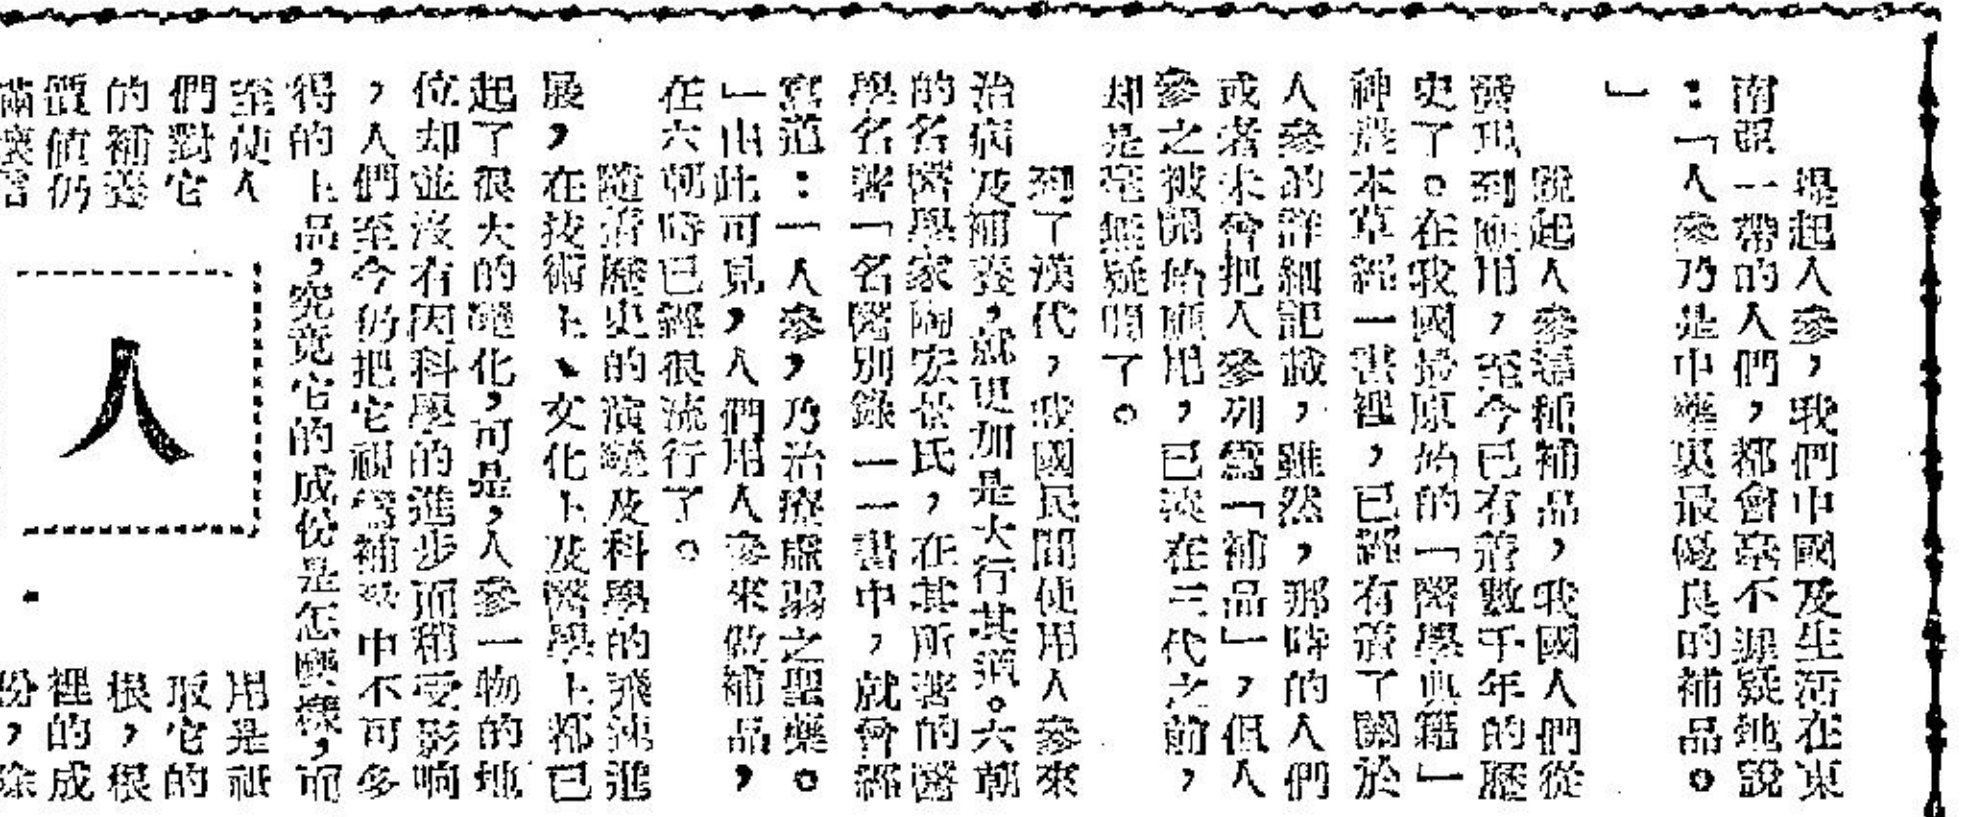 提起人參，我們中國及生活在東
南亞一帶的人們，都會毫不遲疑地說
：「人參乃是中藥裏最優良的補品。
」
說起人參這種補品，我國人們從
發現到應用，至今已有着數千年的歷
史了。在我國最原始的「醫學典籍」
神農本草經一書裡，已經有着了關於
人參的詳細記載，雖然，那時的人們
或者未會把人參列爲「補品」，但人
參之被開始應用，已淡在三代之前，
却是毫無疑問了。
到了漢代，我國民間使用人參來
治病及補養，就更加是大行其道。六朝
的名醫學家陶宏景氏，在其所著的醫
學名著「名醫別錄」一書中，就曾經
寫道：「人參，乃治療虛弱之聖藥。
」由此可見，人們用人參來做補品，
在六朝時已經很流行了。
隨着歷史的演變及科學的飛速進
展，在技術上、文化上及醫學上都已
起了很大的變化，可是，人參一物的地
位却並沒有因科學的進步而稍受影响
，人們至今仍把它視爲補品中不可多
得的上品，究竟它的成份是怎麼樣，而
至使人
們對它
的補養
價值仍
滿懷信
人
用是祇
取它的
根，根
裡的成
份，除